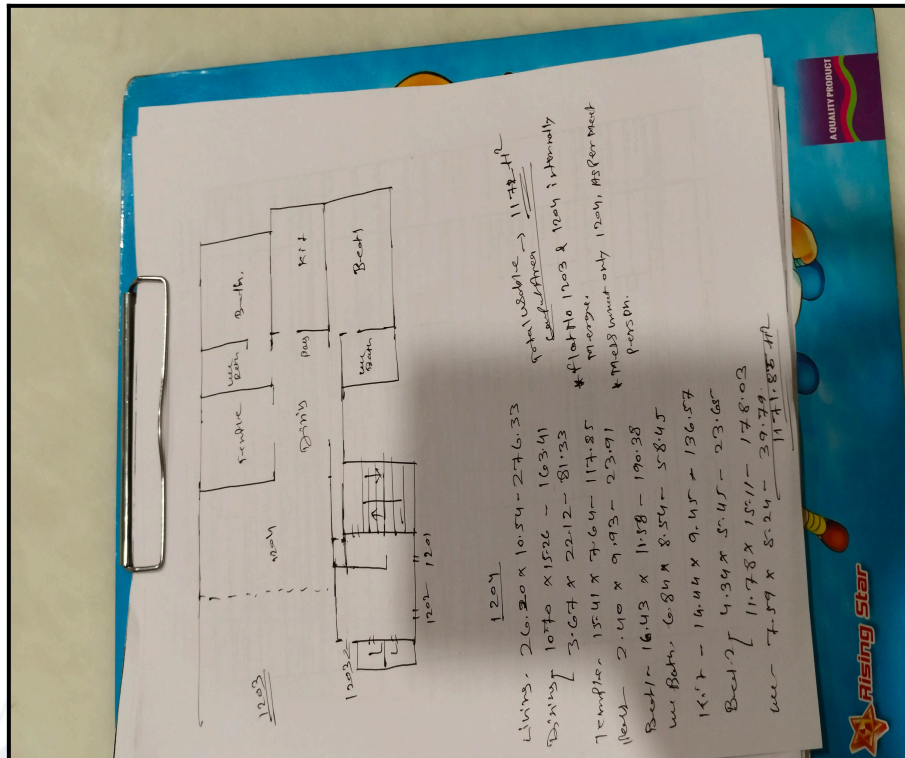 1203
1204
Temple
WC Bath
Bath.
Dining
Pass
Kit
WC Bath
Bed1
1203
1202
1201
L
L
1204
Living - 26.20 x 10.54 - 276.33
Dining [ 10.70 x 15.26 - 163.41
3.67 x 22.12 - 81.33
Temple - 15.41 x 7.64 - 117.85
Pass - 2.40 x 9.93 - 23.91
Bed1 - 16.43 x 11.58 - 190.38
WC Bath. 6.84 x 8.54 - 58.45
Kit - 14.44 x 9.45 - 136.57
Bed.2 [ 4.34 x 5.45 - 23.65
11.78 x 15.11 - 178.03
WC - 7.59 x 5.24 - 39.79
1171.85 ft2
Total Usable → 1172 ft2
Carpet Area
* Flat No 1203 & 1204 internally
merge.
* Mesurment only 1204, As per meet
person.
A QUALITY PRODUCT
Rising Star